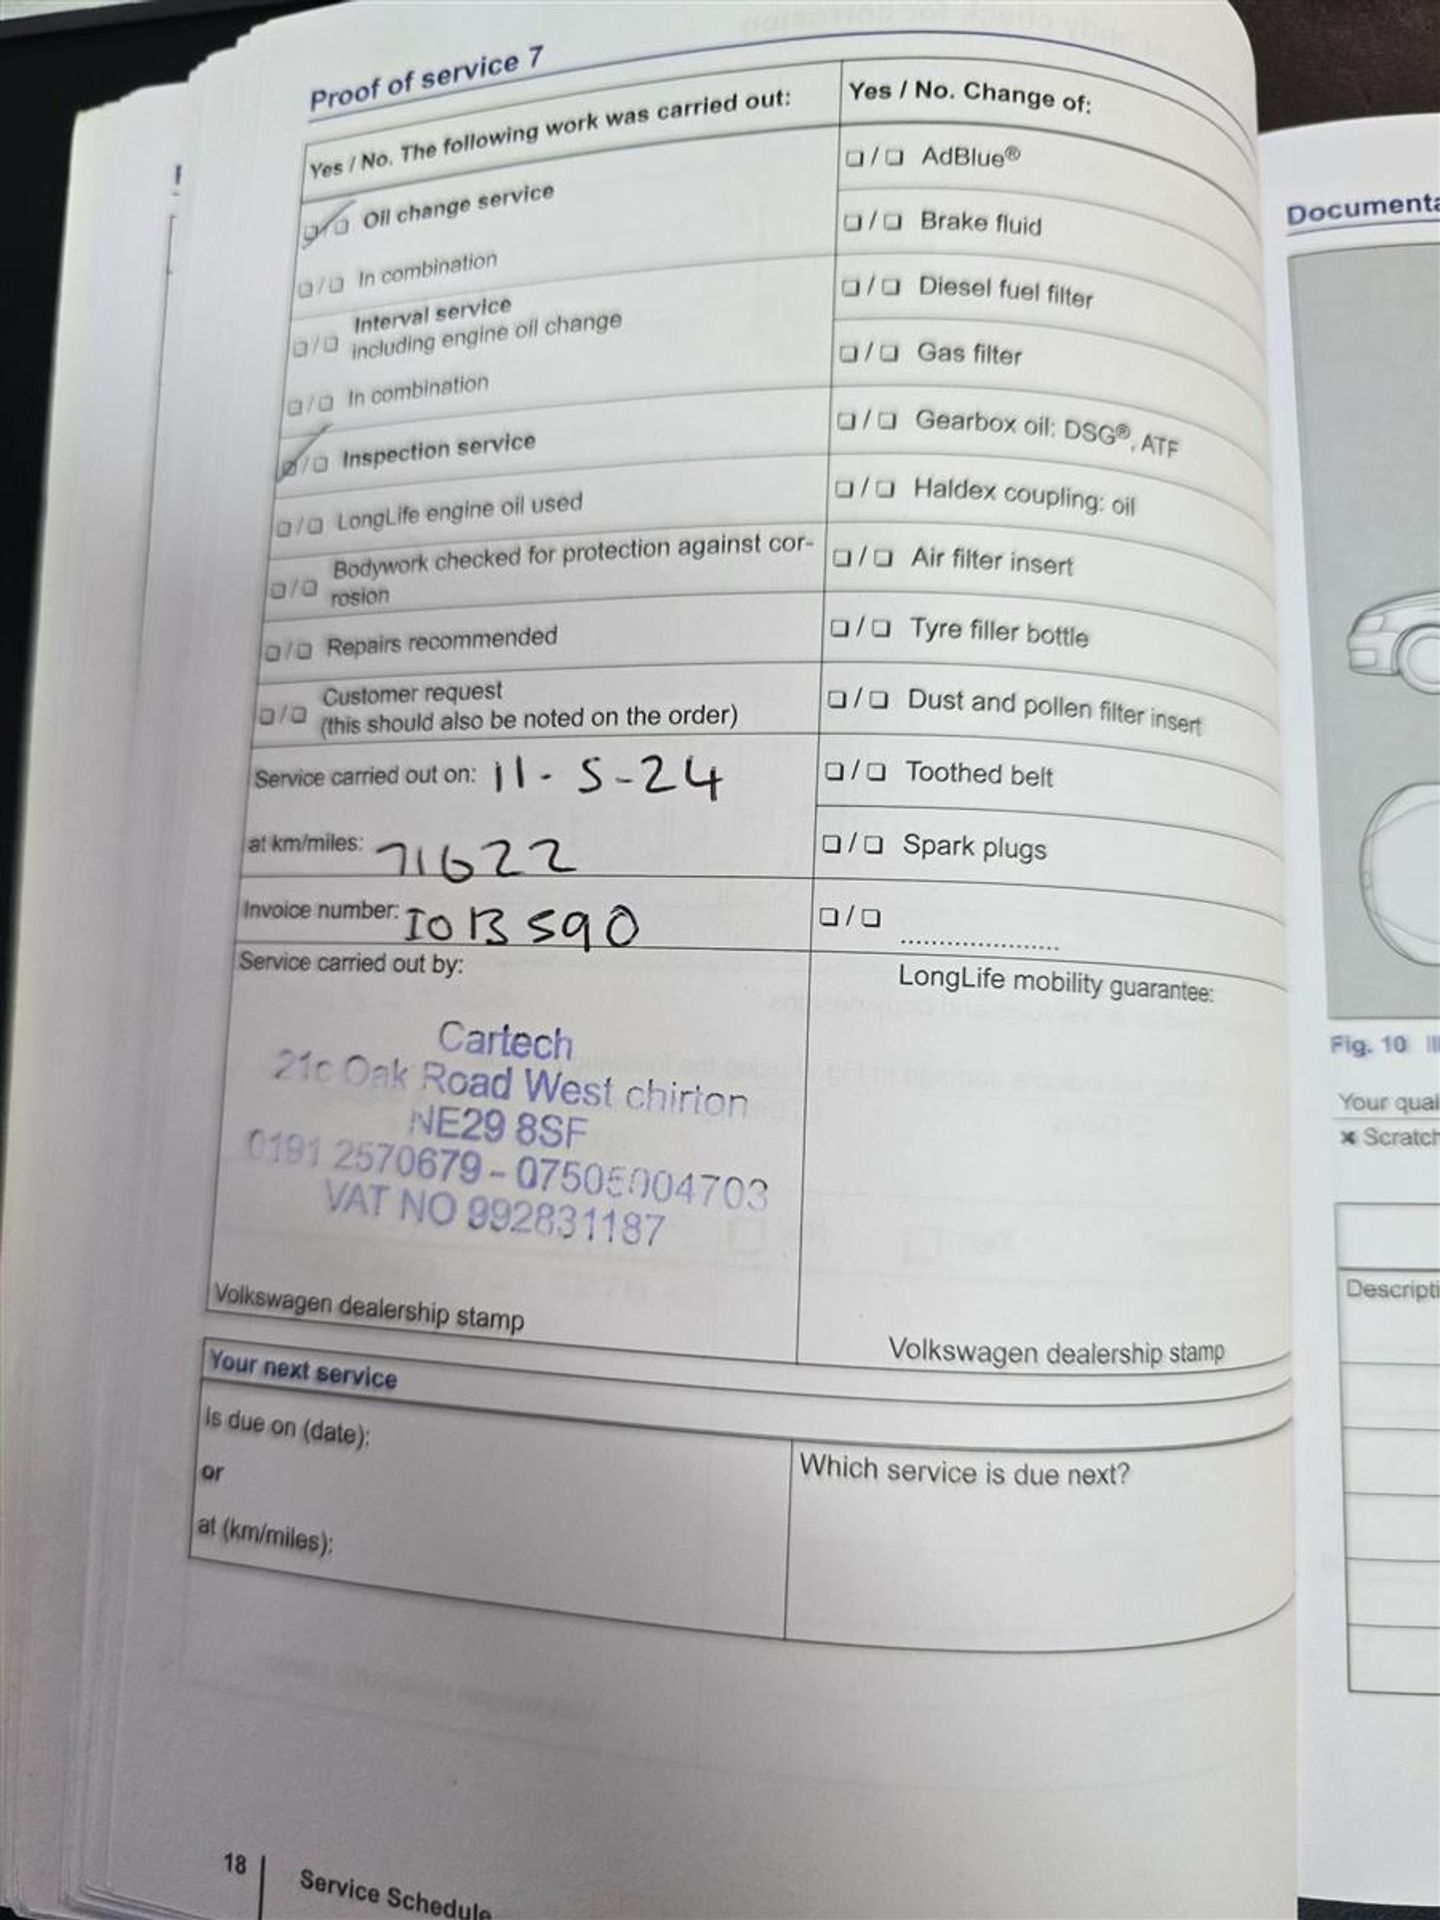 Proof of service 7
Yes / No. The following work was carried out:
❏ / ❏ Oil change service
❏ / ❏ In combination
❏ / ❏ Interval service
including engine oil change
❏ / ❏ In combination
❏ / ❏ Inspection service
❏ / ❏ LongLife engine oil used
❏ / ❏ Bodywork checked for protection against cor-
rosion
❏ / ❏ Repairs recommended
❏ / ❏ Customer request
(this should also be noted on the order)
Service carried out on: 11-5-24
at km/miles: 71622
Invoice number:
Service carried out by:
Cartech
21c Oak Road West chirton
NE29 8SF
0191 2570679 - 07505004703
VAT NO 992831187
Volkswagen dealership stamp
Yes / No. Change of:
❏ / ❏ AdBlue®
❏ / ❏ Brake fluid
❏ / ❏ Diesel fuel filter
❏ / ❏ Gas filter
❏ / ❏ Gearbox oil: DSG®, ATF
❏ / ❏ Haldex coupling: oil
❏ / ❏ Air filter insert
❏ / ❏ Tyre filler bottle
❏ / ❏ Dust and pollen filter insert
❏ / ❏ Toothed belt
❏ / ❏ Spark plugs
❏ / ❏ .....................
LongLife mobility guarantee:
Volkswagen dealership stamp
Your next service
Is due on (date):
or
at (km/miles):
Which service is due next?
18 Service Schedule
Documenta
Fig. 10
Your qual
× Scratch
Descripti